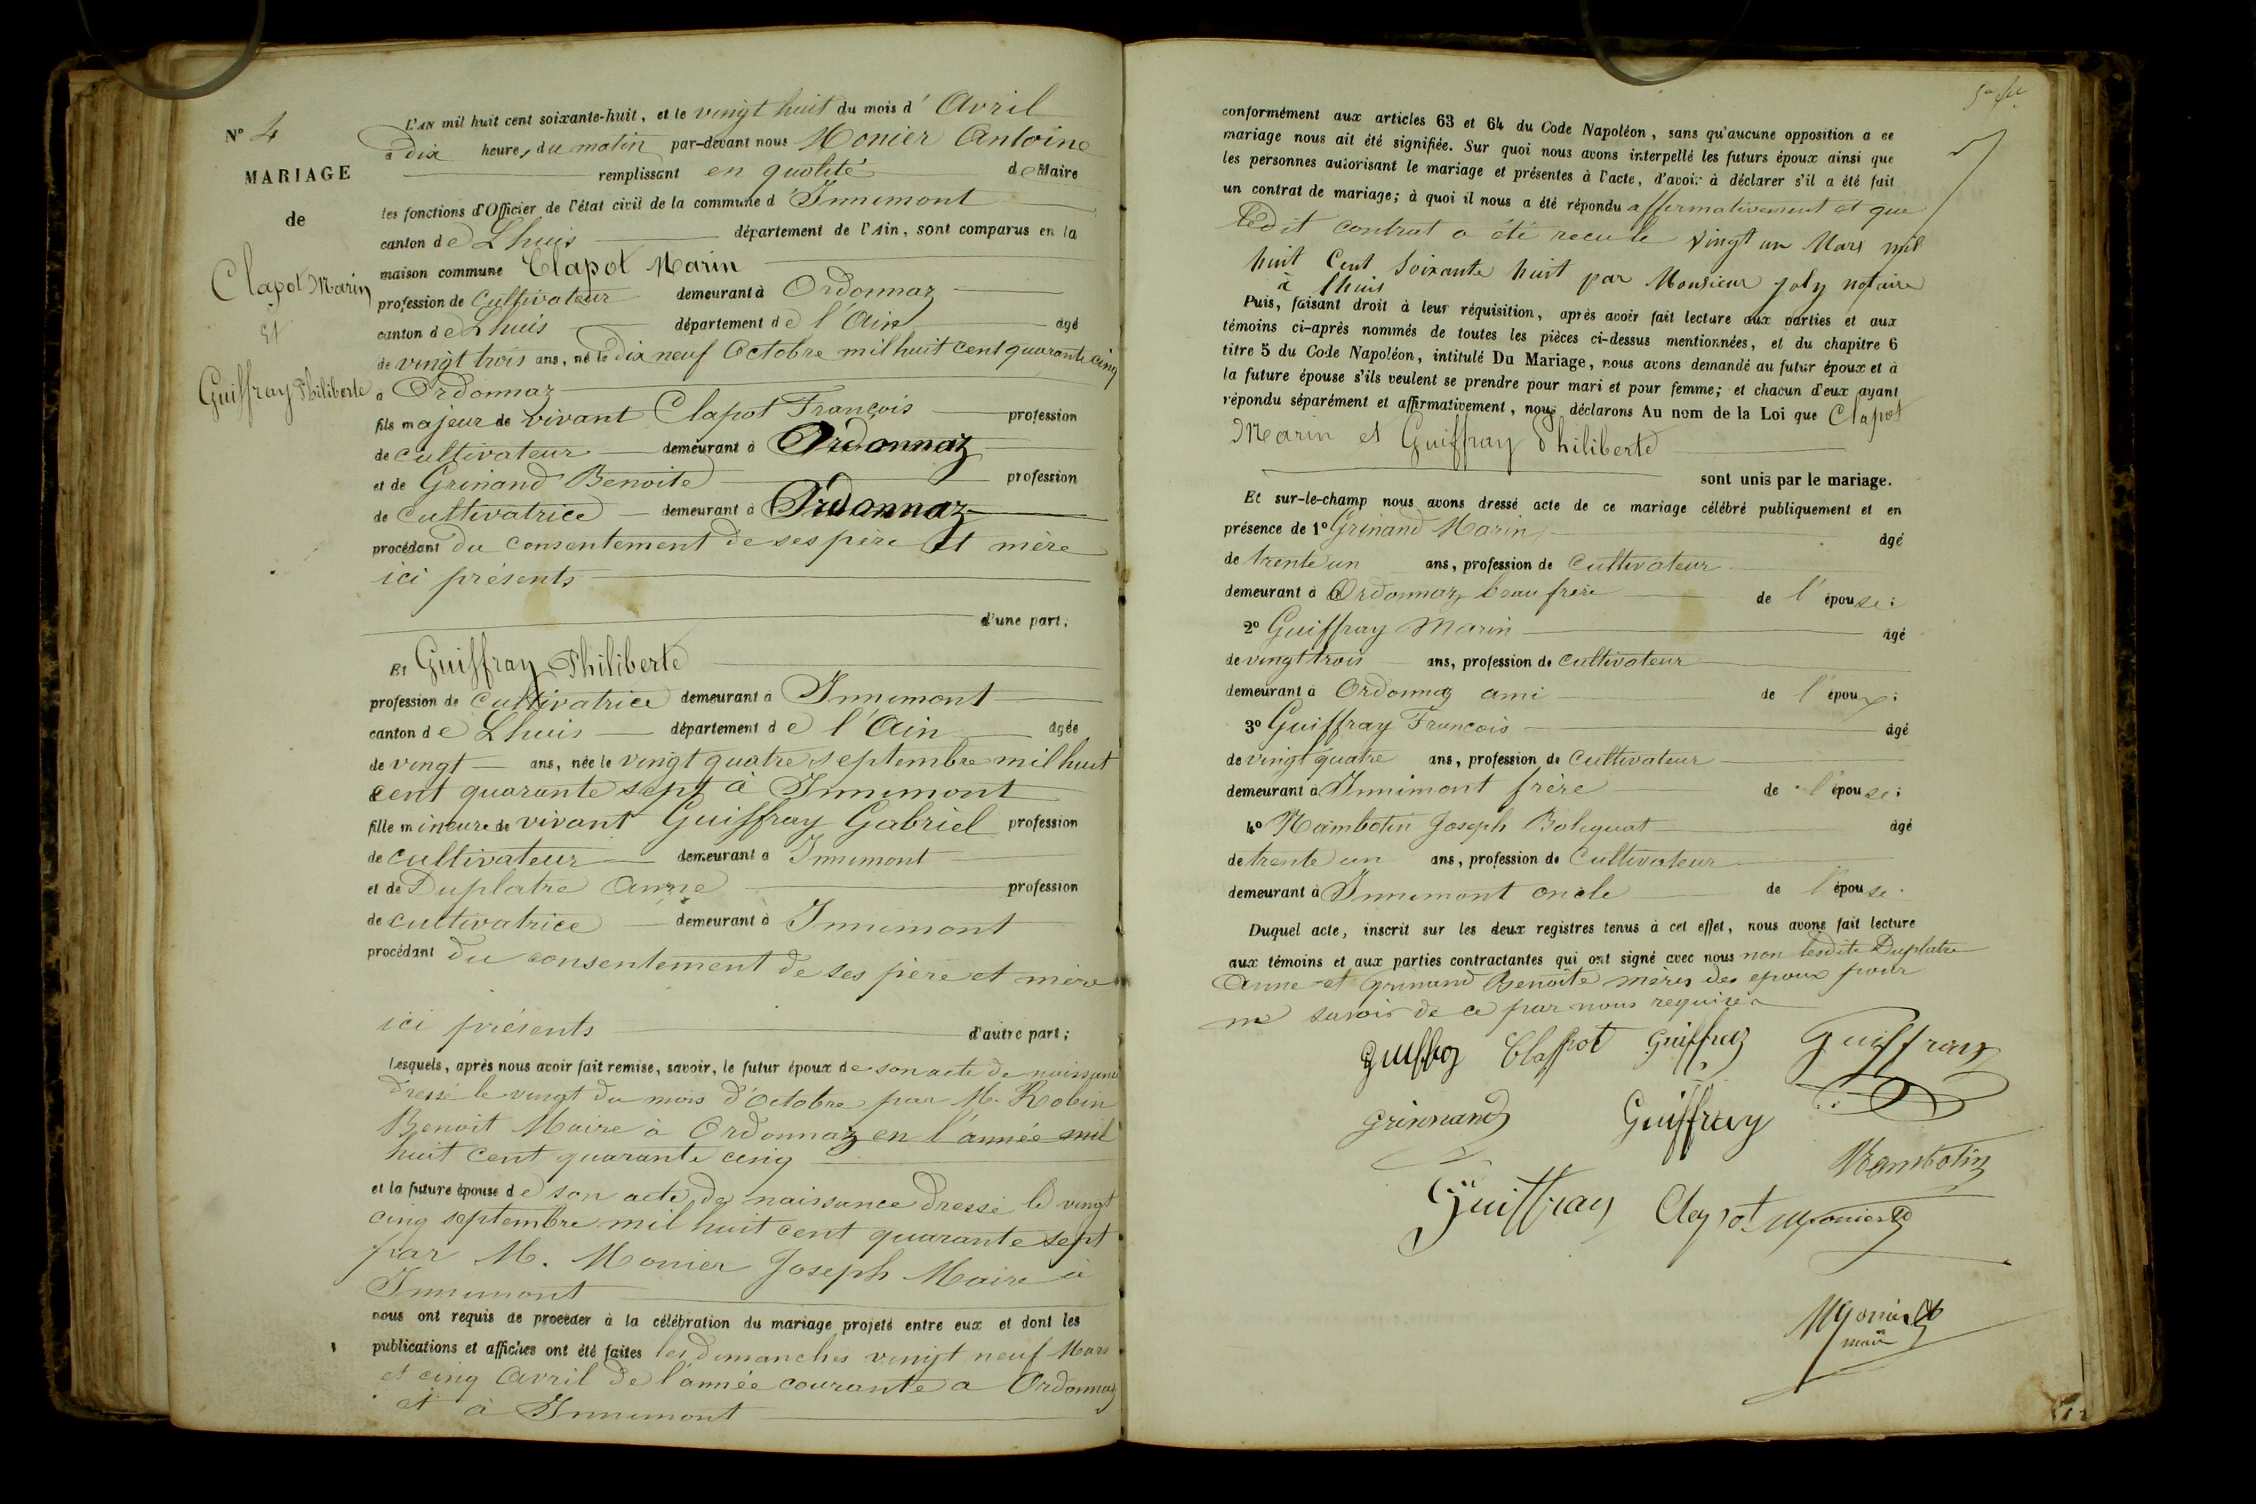 N° 4
MARIAGE
de
Clapot Marin
et
Guiffray Philiberte
L'AN mil huit cent soixante-huit, et le vingt huit du mois d' Avril
à dix heures du matin par-devant nous Monier Antoine
remplissant en qualité de Maire
les fonctions d'Officier de l'état civil de la commune d'Innimont
canton de Lhuis département de l'Ain, sont comparus en la
maison commune Clapot Marin
profession de Cultivateur demeurant à Ordonnaz
canton de Lhuis département de l'Ain âgé
de vingt trois ans, né le dix neuf Octobre mil huit cent quarante cinq
à Ordonnaz
fils majeur de vivant Clapot François profession
de cultivateur demeurant à Ordonnaz
et de Grinand Benoite profession
de cultivatrice demeurant à Ordonnaz
procédant du consentement de ses père et mère
ici présents
d'une part;
Et Guiffray Philiberte
profession de cultivatrice demeurant à Innimont
canton de Lhuis département de l'Ain âgée
de vingt ans, née le vingt quatre septembre mil huit
cent quarante sept à Innimont
fille mineure de vivant Guiffray Gabriel profession
de cultivateur demeurant à Innimont
et de Duplatre Anne profession
de cultivatrice demeurant à Innimont
procédant du consentement de ses père et mère
ici présents d'autre part;
Lesquels, après nous avoir fait remise, savoir, le futur époux de son acte de naissance
dressé le vingt du mois d'Octobre par M. Robin
Benoit Maire à Ordonnaz en l'année mil
huit cent quarante cinq
et la future épouse de son acte de naissance dressé le vingt
cinq septembre mil huit cent quarante sept
par M. Monier Joseph Maire à
Innimont
nous ont requis de procéder à la célébration du mariage projeté entre eux et dont les
publications et affiches ont été faites les dimanches vingt neuf Mars
et cinq Avril de l'année courante a Ordonnaz
et à Innimont
conformément aux articles 63 et 64 du Code Napoléon, sans qu'aucune opposition a ce
mariage nous ait été signifiée. Sur quoi nous avons interpellé les futurs époux ainsi que
les personnes autorisant le mariage et présentes à l'acte, d'avoir à déclarer s'il a été fait
un contrat de mariage; à quoi il nous a été répondu affirmativement et que
ledit contrat a été recu le vingt un Mars mil
huit Cent Soixante huit par Monsieur Joly notaire
à Lhuis
Puis, faisant droit à leur réquisition, après avoir fait lecture aux parties et aux
témoins ci-après nommés de toutes les pièces ci-dessus mentionnées, et du chapitre 6
titre 5 du Code Napoléon, intitulé Du Mariage, nous avons demandé au futur époux et à
la future épouse s'ils veulent se prendre pour mari et pour femme; et chacun d'eux ayant
répondu séparément et affirmativement, nous déclarons Au nom de la Loi que Clapot
Marin et Guiffray Philiberte
sont unis par le mariage.
Et sur-le-champ nous avons dressé acte de ce mariage célébré publiquement et en
présence de 1° Grinand Marin âgé
de trente un ans, profession de cultivateur
demeurant à Ordonnaz beau frère de l'épouse;
2° Guiffray Marin âgé
de vingt trois ans, profession de cultivateur
demeurant à Ordonnaz ami de l'époux;
3° Guiffray Francois âgé
de vingt quatre ans, profession de cultivateur
demeurant à Innimont frère de l'épouse;
4° Rambotin Joseph âgé
de trente un ans, profession de Cultivateur
demeurant à Innimont oncle de l'épouse.
Duquel acte, inscrit sur les deux registres tenus à cet effet, nous avons fait lecture
aux témoins et aux parties contractantes qui ont signé avec nous non lesdite Duplatre
Anne et Grinand Benoite mères des epoux pour
ne savoir de ce par nous requises
Guiffray Clapot Guiffray Guiffray
Grinnand Guiffray
Rambotin
Guiffray Clapot Monier
Monier
maire